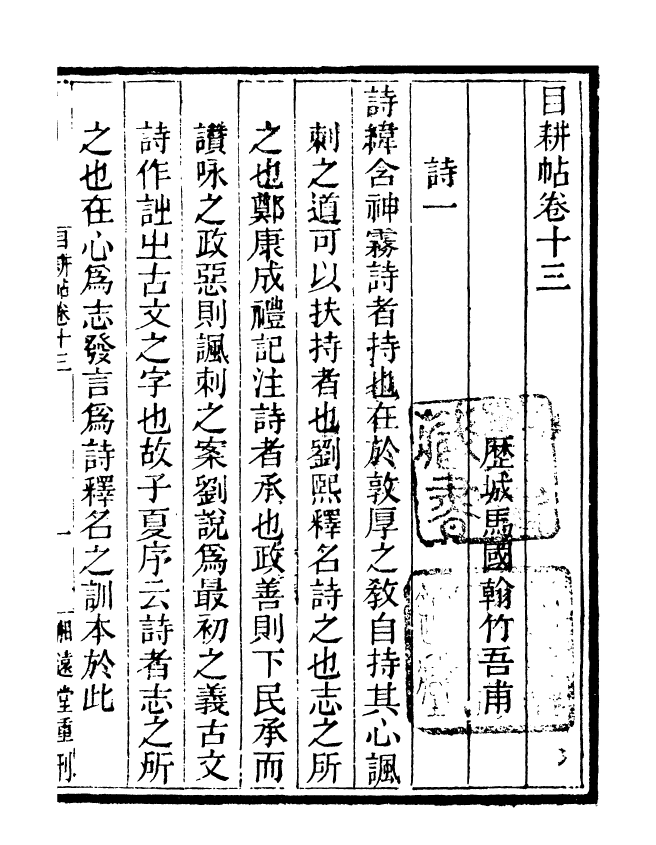 目耕帖卷十三
歴城馬國翰竹吾甫
詩一
詩緯含神霧詩者持也在於敦厚之敎自持其心諷
刺之道可以扶持者也劉熙釋名詩之也志之所
之也鄭康成禮記注詩者承也政善則下民承而
讚咏之政惡則諷刺之案劉說爲最初之義古文
詩作訨㞢古文之字也故子夏序云詩者志之所
之也在心爲志發言爲詩釋名之訓本於此
目耕帖卷十三 一 湘遠堂重刊